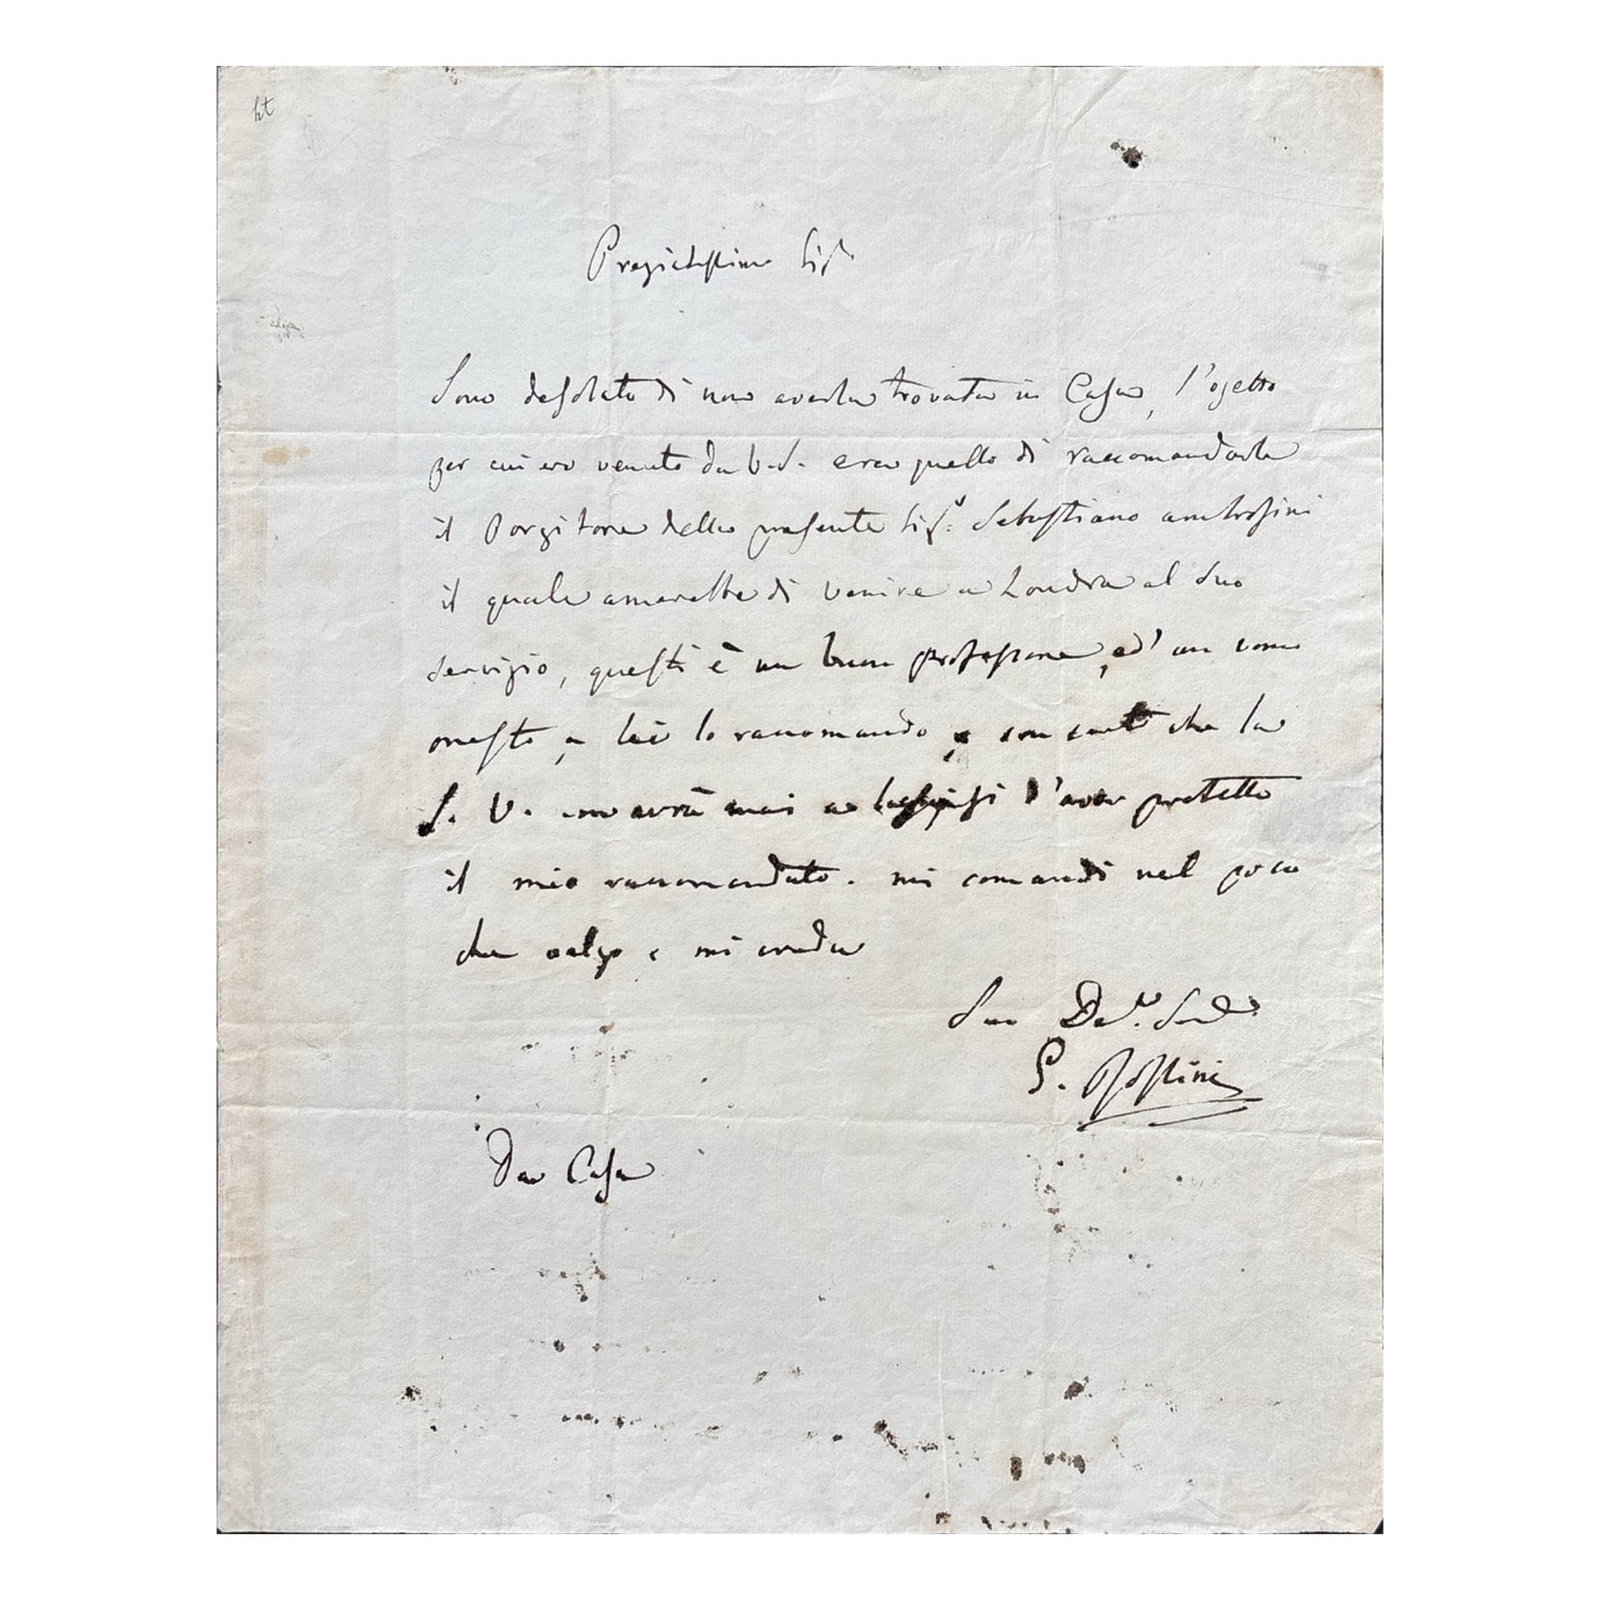 Pregiatissimo Sigr.
Sono desolato di non averla trovata in Casa, l'ogetto
per cui ero venuto da V.S. era quello di raccomandarle
il Porgitore della presente Sigr. Sebastiano ambrosini
il quale amerebbe di venire a Londra al suo
servizio, questi è un buon professore, ed' un uomo
onesto, a lei lo raccomando, e son cert che la
S. V. non avrà mai a d'aver protetto
il mio raccomandato. mi comandi nel poco
che valgo e mi creda
Suo Devo. Serve.
G. Rossini
Da Casa